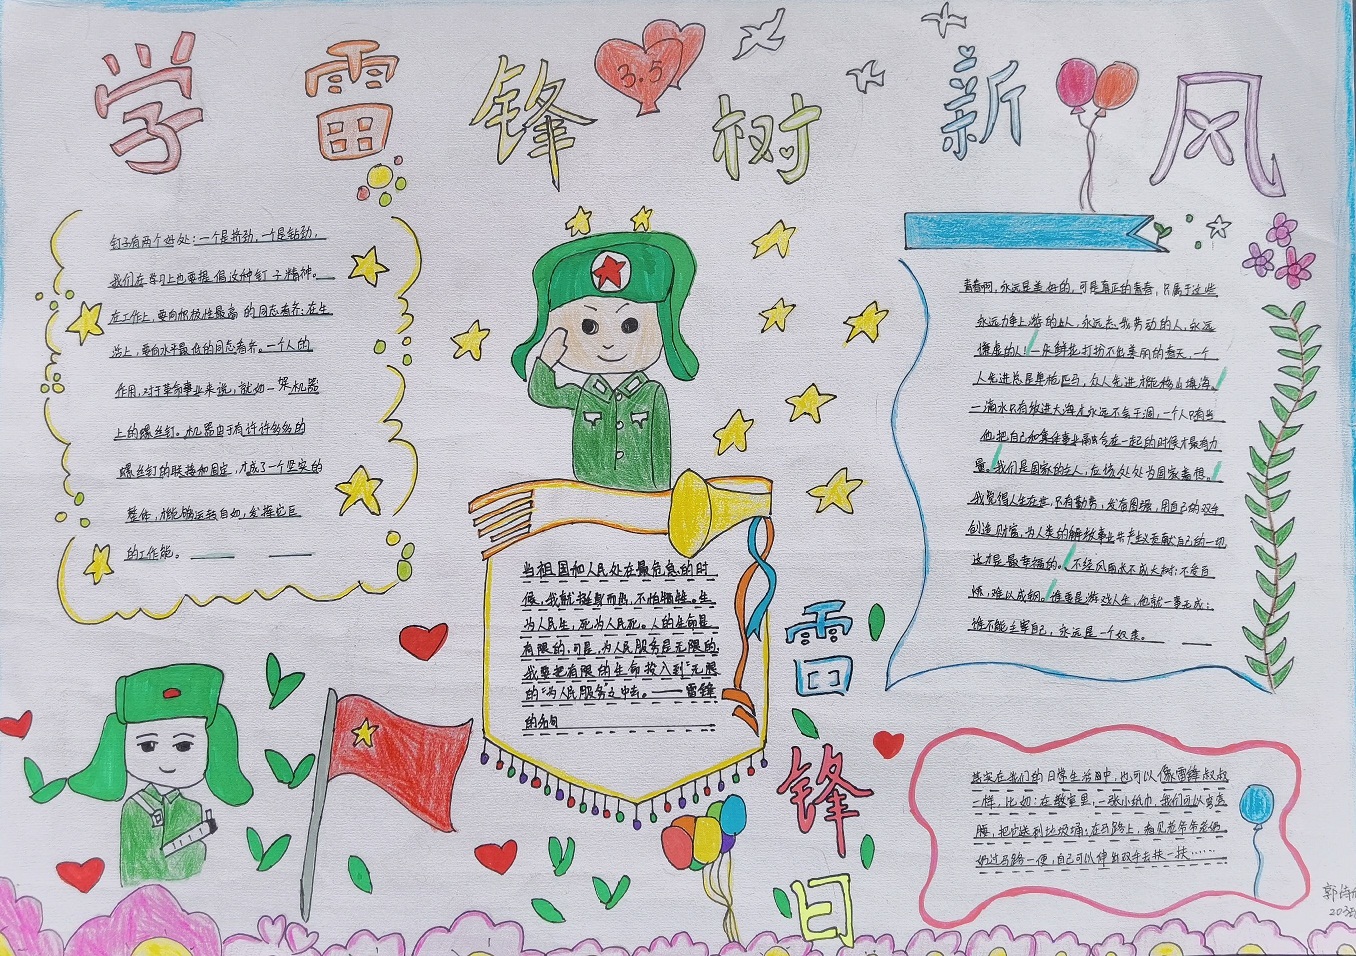 学雷锋树新风
3.5
钉子有两个好处：一个是挤劲，一个是钻劲，
我们在学习上也要提倡这种钉子精神。
在工作上，要向积极性最高的同志看齐；在生
活上，要向水平最低的同志看齐。一个人的
作用，对于革命事业来说，就如一架机器
上的螺丝钉。机器由于有许许多多的
螺丝钉的联接和固定，才成了一个坚实的
整体，才能够运转自如，发挥它巨
的工作能。
当祖国和人民处在最危急的时
候，我就挺身而出，不怕牺牲。生
为人民生，死为人民死。人的生命是
有限的，可是，为人民服务是无限的，
我要把有限的生命投入到“无限
的“为人民服务”之中去。——雷锋
的名句
青春啊，永远是美好的，可是真正的青春，只属于这些
永远力争上游的人，永远忘我劳动的人，永远
谦虚的人！一朵鲜花打扮不出美丽的春天，一个
人先进总是单枪匹马，众人先进才能移山填海。
一滴水只有放进大海才永远不会干涸，一个人只有当
他把自己和集体事业融合在一起的时候才最有力
量。我们是国家的主人，应该处处为国家着想。
我觉得人生在世，只有勤劳，发奋图强，用自己的双手
创造财富，为人类的解放事业共产主义贡献自己的一切，
这才是最幸福的。不经风雨长不成大树；不受百
炼，难以成钢。谁要是游戏人生，他就一事无成；
谁不能主宰自己，永远是一个奴隶。
雷锋日
其实在我们的日常生活中，也可以像雷锋叔叔
一样，比如：在教室里，一张小纸巾，我们可以弯弯
腰，把它送到垃圾桶；在马路上，看见老爷爷老奶
奶过马路一便，自己可以伸出双手去扶一扶……
郭诗